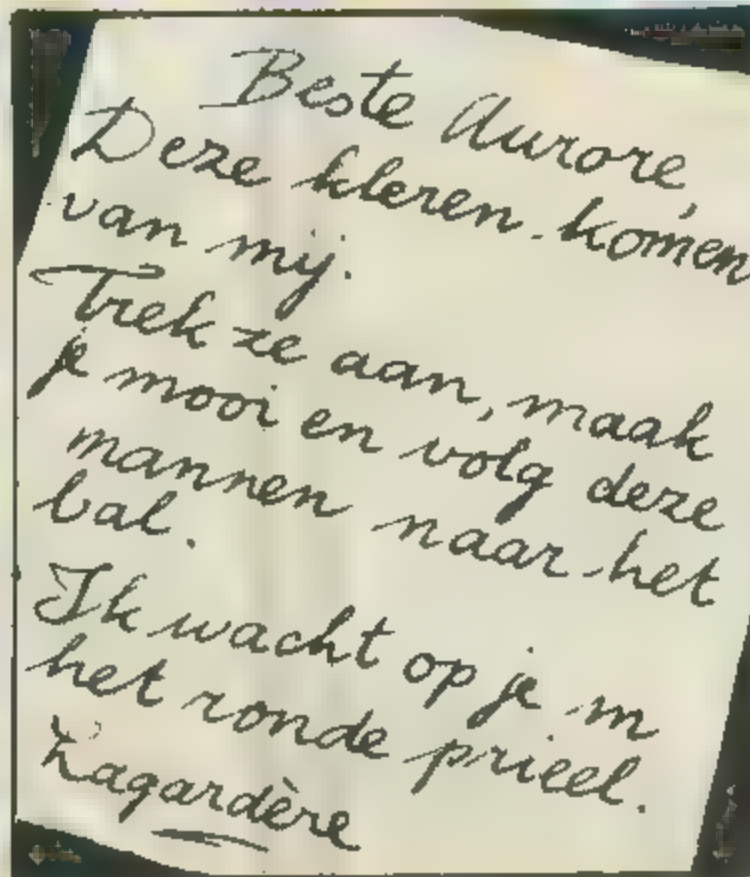 Beste Aurore,
Deze kleren komen
van mij.
Trek ze aan, maak
je mooi en volg deze
mannen naar het
bal.
Ik wacht op je in
het ronde prieel.
Lagardère